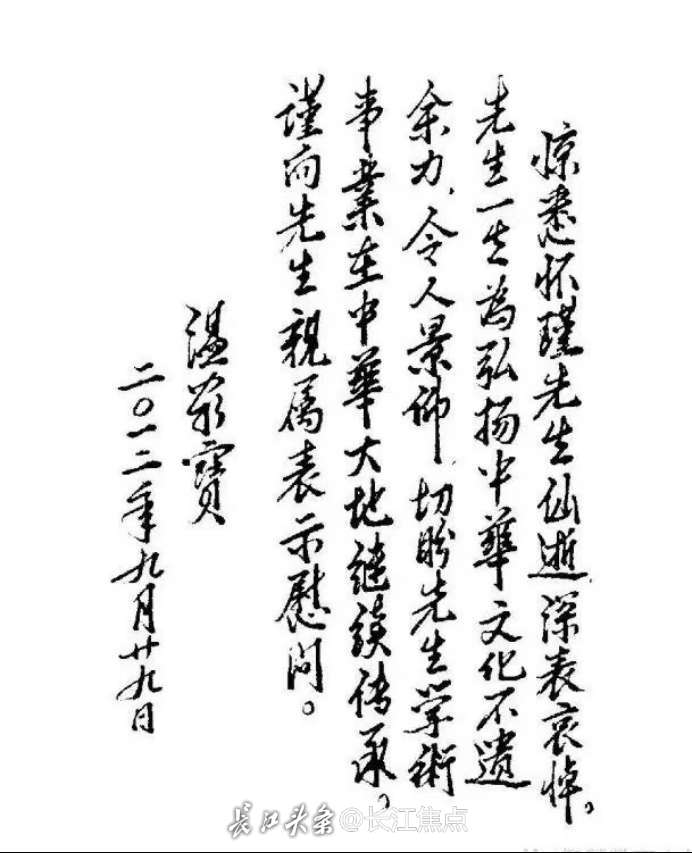 惊悉怀瑾先生仙逝,深表哀悼。
先生一生为弘扬中華文化不遗
余力,令人景仰,切盼先生学術
事業在中華大地继续传承。
謹向先生親属表示慰问。
温家寶
二〇一二年九月廿九日
长江头条@长江焦点